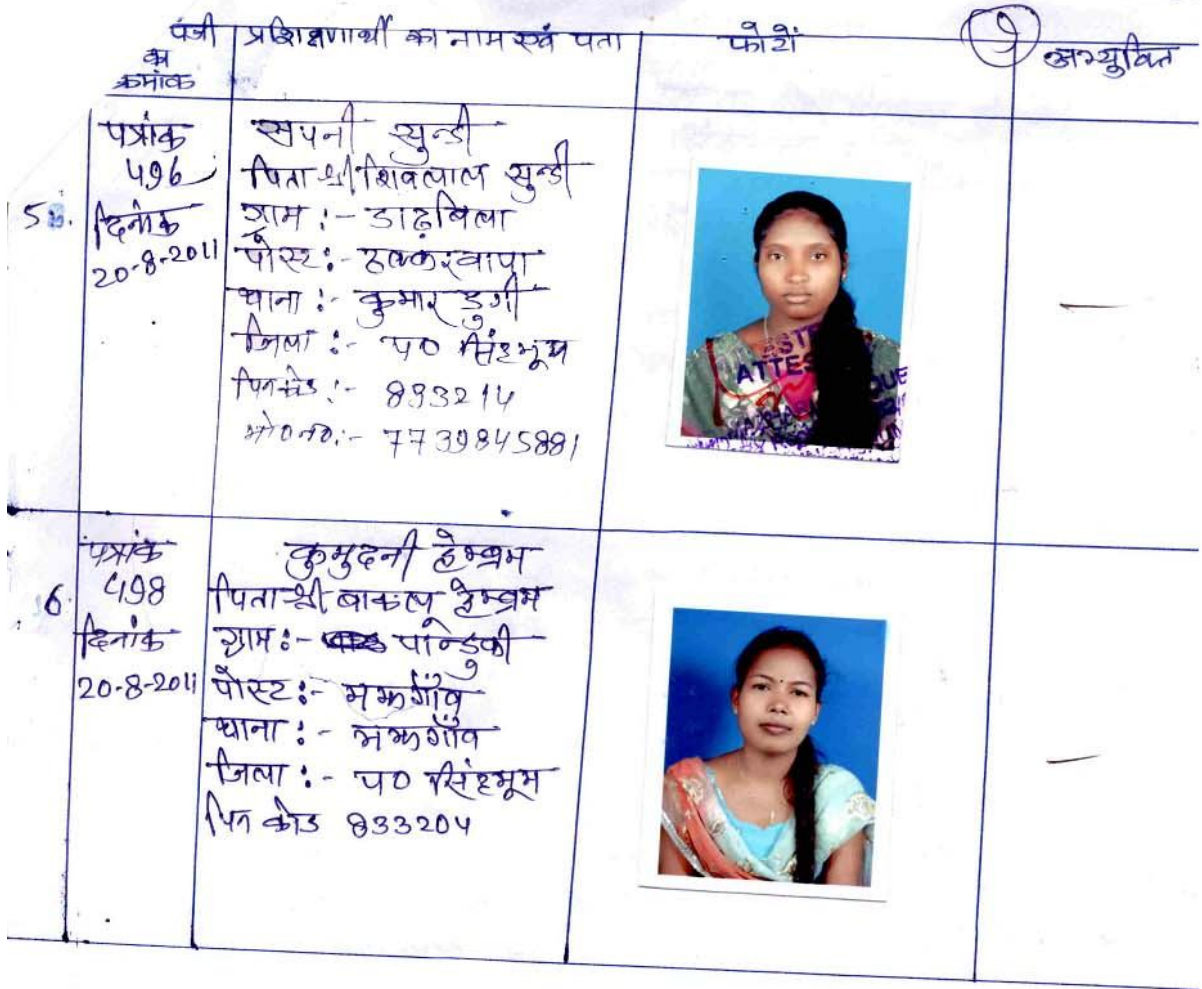 पंजी का क्रमांक प्रशिक्षणार्थी का नाम एवं पता फोटों अभ्युक्ति
5. पत्रांक 496 दिनांक 20-8-2011
सपनी सुन्डी
पिता श्री शिवलाल सुन्डी
ग्राम :-
पोस्ट :-
थाना :- कुमार डुगी
जिला :- प० सिंहभूम
पिनकोड :- 833214
मो० न०:- 7739845881
ATTES
6. पत्रांक 498 दिनांक 20-8-2011
कुमुदनी हेम्ब्रम
पिता श्री बाकलू हेम्ब्रम
ग्राम :- पान्डुकी
पोस्ट :- मझगाँव
थाना :- मझगाँव
जिला :- प० सिंहभूम
पिन कोड 833204